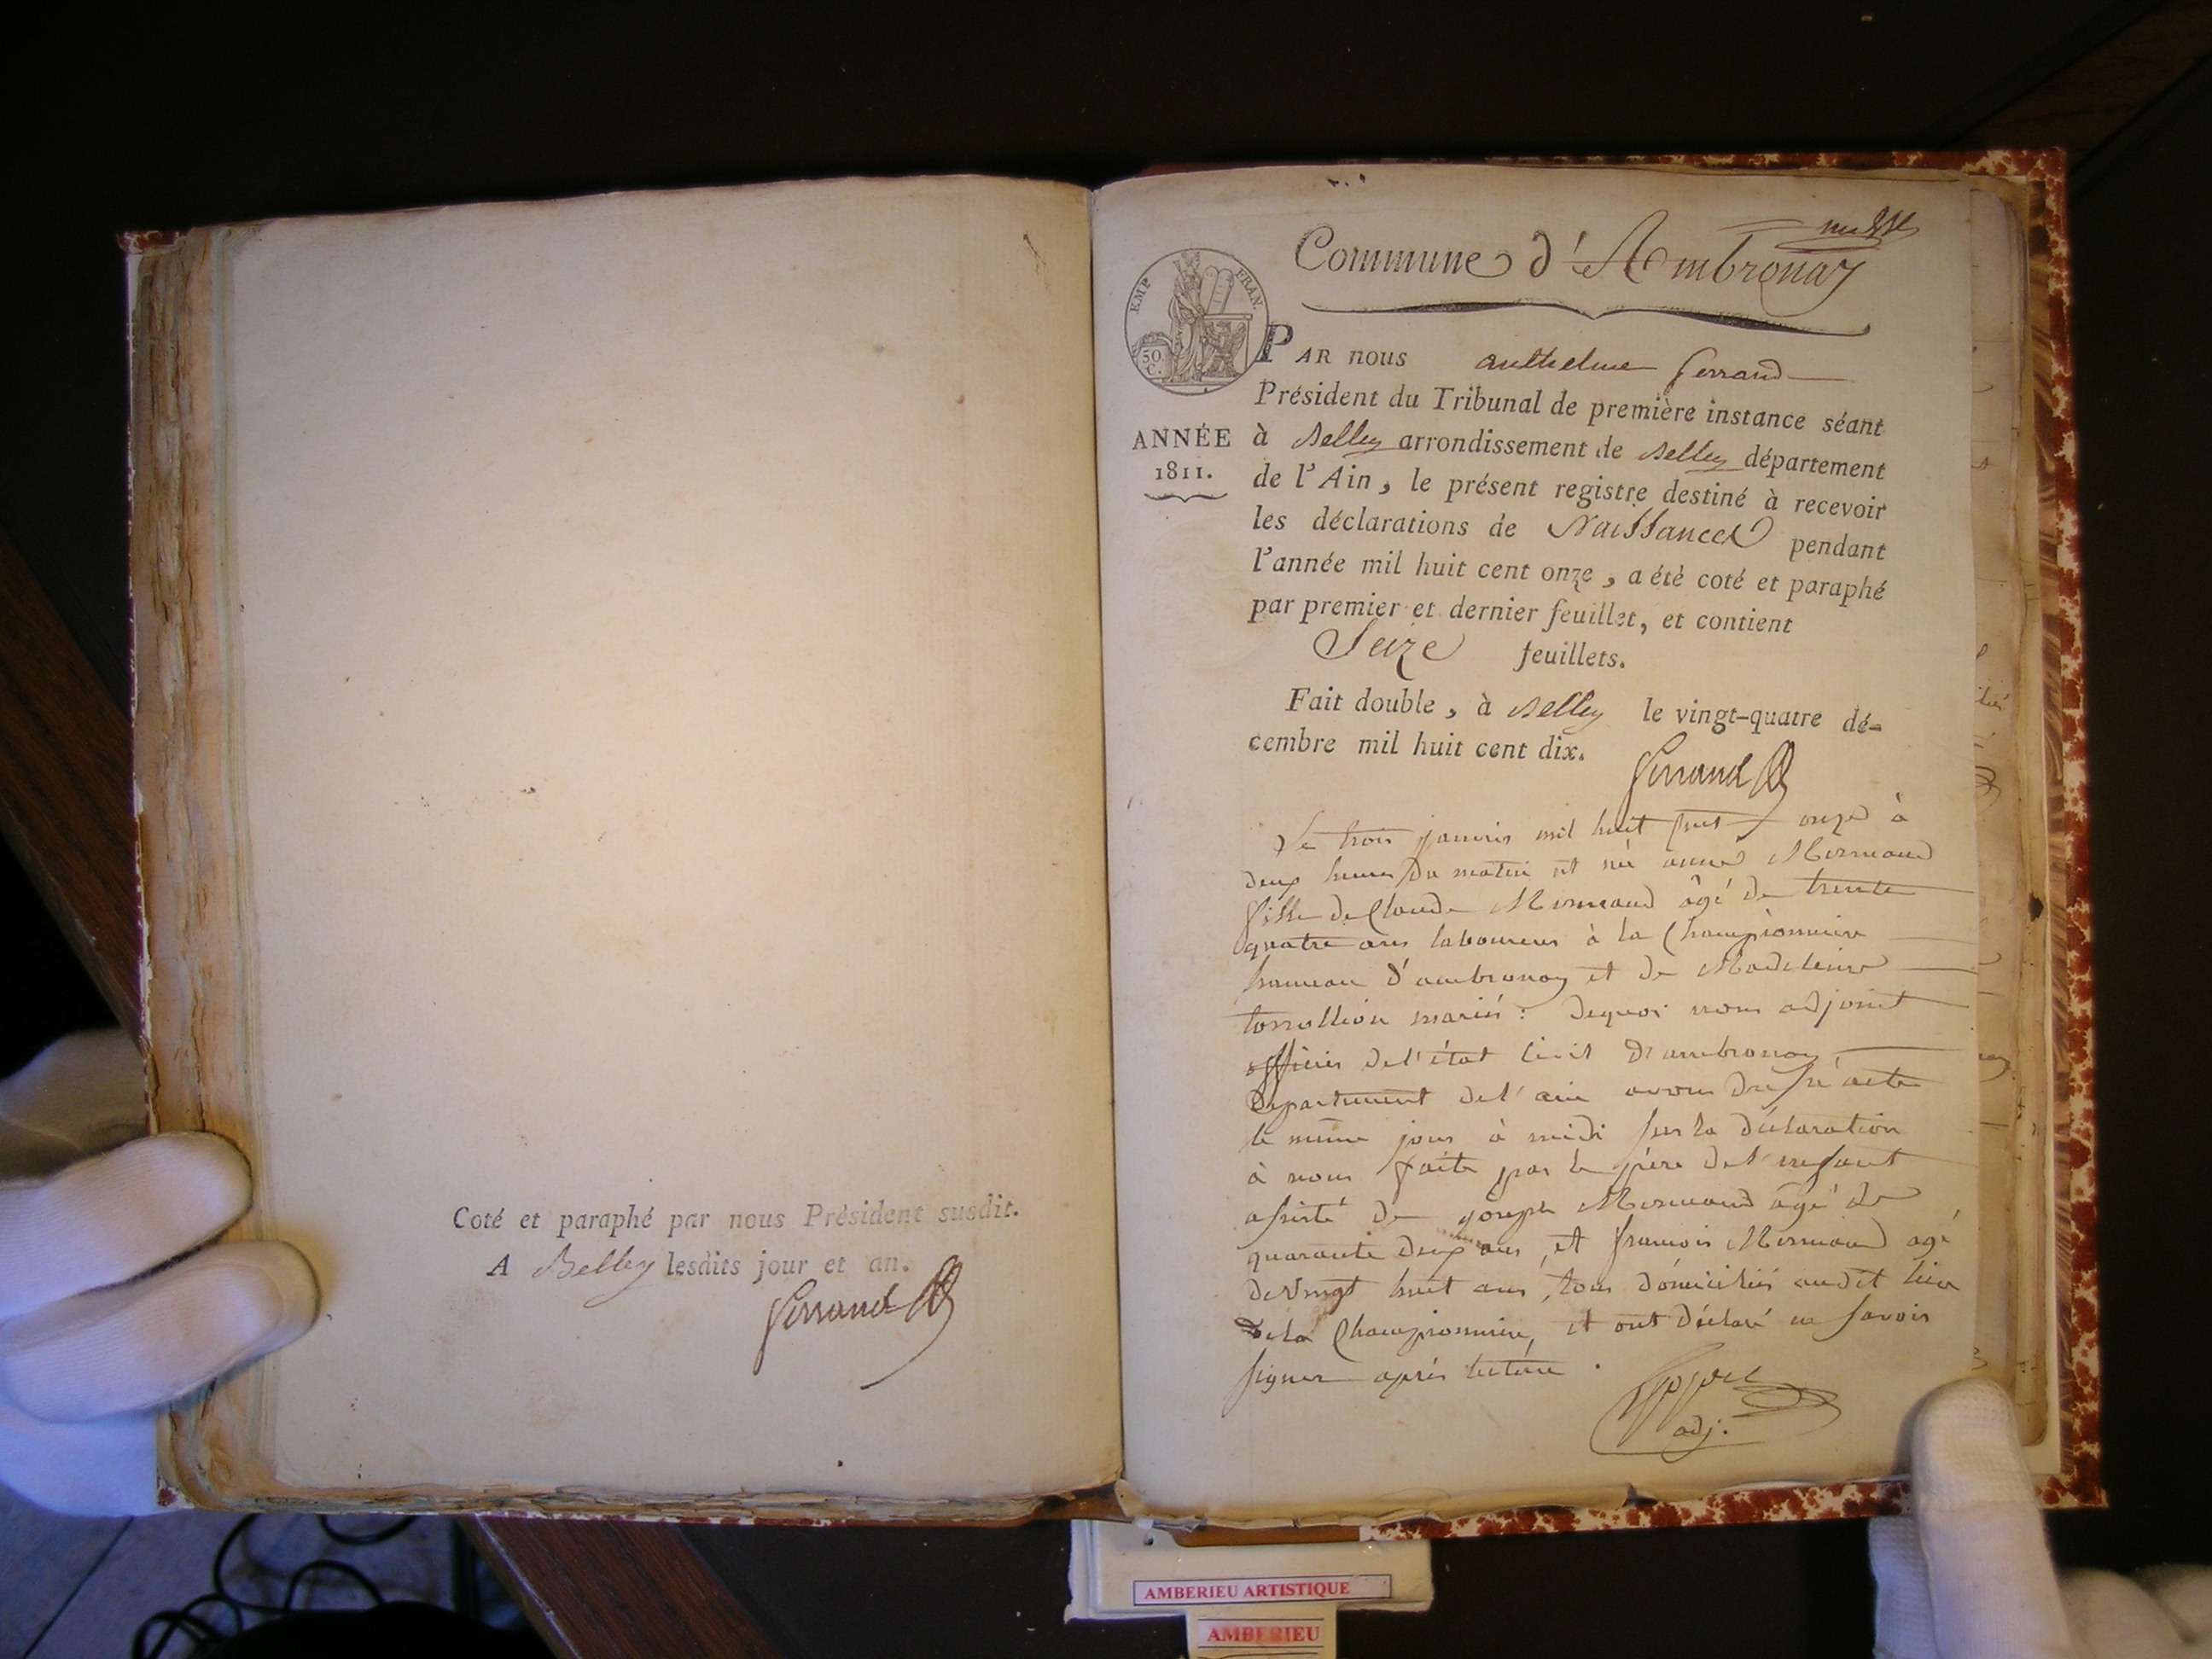 Coté et paraphé par nous Président susdit.
A Belley lesdits jour et an.
Ferrand
Commune d'Ambronay
EMP. FRAN.
50 C.
ANNÉE
1811.
PAR nous anthelme ferrand
Président du Tribunal de première instance séant
à Belley arrondissement de Belley département
de l'Ain, le présent registre destiné à recevoir
les déclarations de Naissances pendant
l'année mil huit cent onze, a été coté et paraphé
par premier et dernier feuillet, et contient
Seize feuillets.
Fait double, à Belley le vingt-quatre dé-
cembre mil huit cent dix.
Ferrand
Le trois janvier mil huit cent onze à
deux heures du matin est née anne Mermand
fille de Claude Mermand âgé de trente
quatre ans laboureur à la Championnière
hameau d'ambronay et de Madeleine
tornollion mariés : dequoi nous adjoint
officier de l'état civil d'ambronay,
Département de l'ain avons dressé acte
le même jour à midi sur la déclaration
à nous faite par le père de l'enfant
assisté de joseph Mermand âgé de
quarante deux ans, et francois Mermand agé
de vingt huit ans, tous domiciliés audit lieu
de la Championnière, et ont déclaré ne savoir
signer après lecture.
adj.
AMBERIEU ARTISTIQUE
AMBERIEU